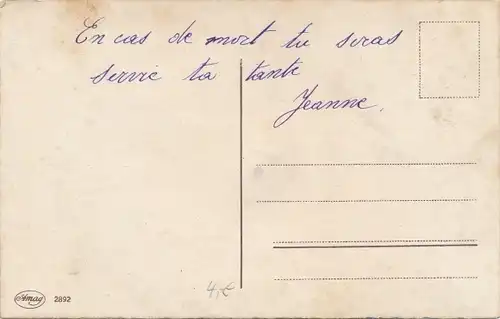 En cas de mort tu seras
servie ta tante
Jeanne.
Amag 2892
4,-